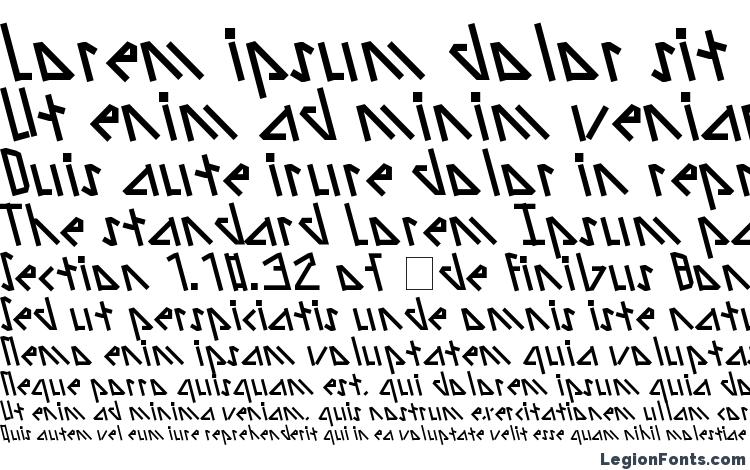 Lorem ipsum dolor sit
Ut enim ad minim veniam
Duis aute irure dolor in repr
The standard Lorem Ipsum pa
Section 1.10.32 of de Finibus Bon
Sed ut perspiciatis unde omnis iste natu
Nemo enim ipsam voluptatem quia volupta
Neque porro quisquam est, qui dolorem ipsum quia do
Ut enim ad minima veniam, quis nostrum exercitationem ullam cor
Quis autem vel eum iure reprehenderit qui in ea voluptate velit esse quam nihil molestiae
LegionFonts.com